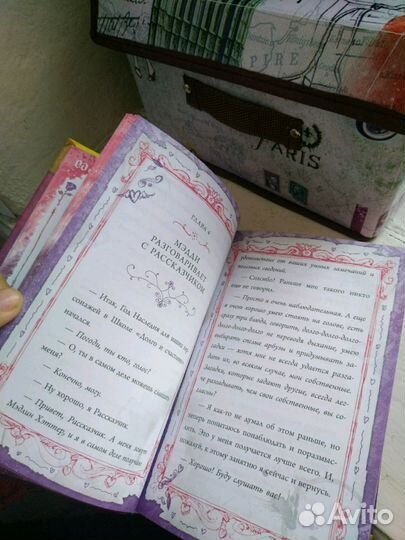 PIRE
PARIS
ГЛАВА 6
МЭДДИ
РАЗГОВАРИВАЕТ
С РАССКАЗЧИКОМ
— Итак, Год Наследия для наших пер-
сонажей в Школе «Долго и счастливо»
начался.
— Погоди, ты кто, голос?
— О, ты в самом деле можешь слышать
меня?
— Конечно, могу.
— Ну хорошо, я Рассказчик.
— Привет, Рассказчик. А меня зовут
Мэдлин Хэттер, и я в самом деле получаю
удовольствие от ваших умных замечаний и
полезных сведений.
— Спасибо! Раньше мне такого никто
еще не говорил.
— Просто я очень наблюдательная. А еще
я очень хорошо умею стоять на голове, есть
сразу три блюда, говорить долго-долго-долго-
долго-долго-долго не переводя дыхание, умею
выбирать спелые арбузы и придумывать за-
гадки — хотя мне не всегда удается разга-
дать их, во всяком случае, мои собственные.
Загадки, которые задают другие, всегда лег-
че разгадывать, чем свои собственные, вы со-
гласны?
— Я как-то не думал об этом раньше, но
теперь попытаюсь понаблюдать и поразмыс-
лить. Это у меня получается лучше всего. И,
пожалуй, к этому занятию я сейчас и вернусь.
— Хорошо! Буду слушать вас!
Avito